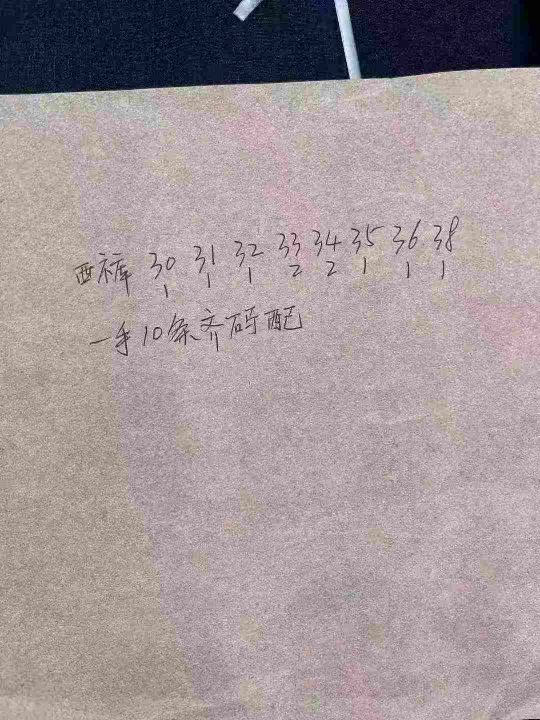 西裤 30 31 32 33 34 35 36 38
1 1 1 2 2 1 1 1
一手10条齐码配